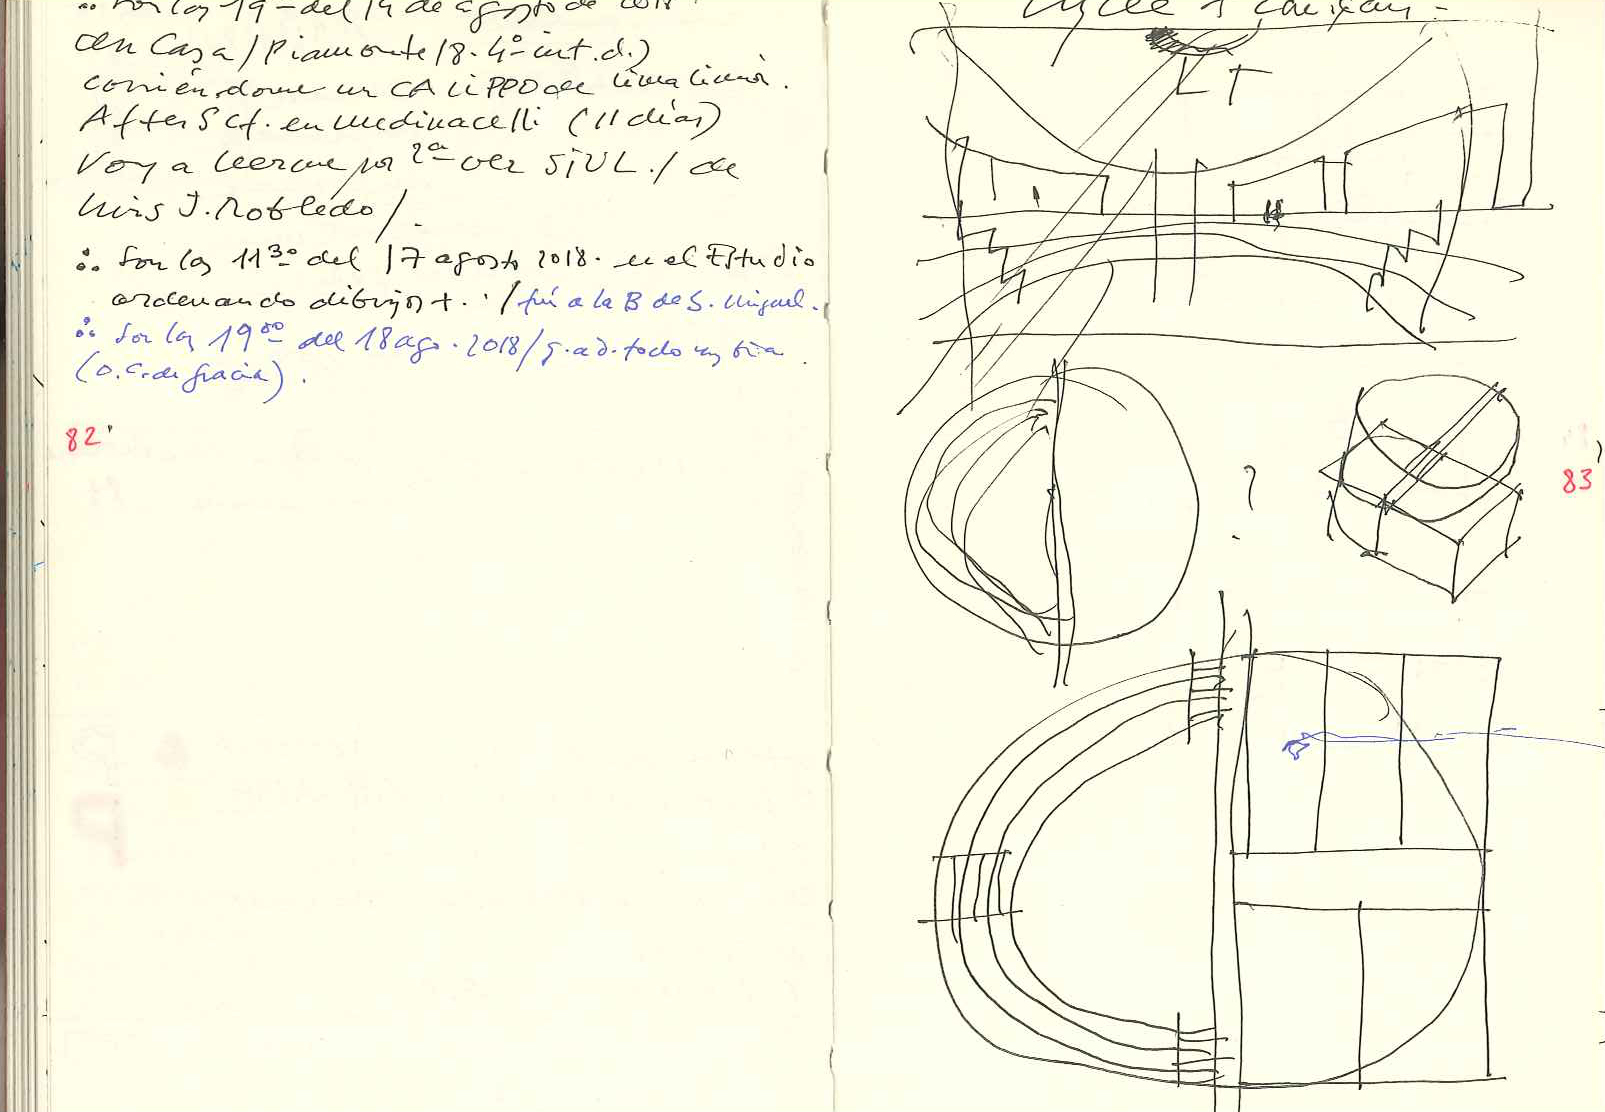 ∴ Son las 19 - del 14 de agosto de 2018.
en Casa / Piamonte 18. 4º int. d.)
comiéndome un CALIPPO de lima limón.
After Scf. en Medinacelli (11 días)
Voy a leerme por 2ª vez SIUL. / de
Luis J. Robledo /.
∴ Son las 11 30 del 17 agosto 2018. en el Estudio
ordenando dibujos +. / fui a la B de S. Miguel.
∴ Son las 19 00 del 18 ago. 2018 / g. a D. todo
(D. C. de gracia).
82
LT
?
83